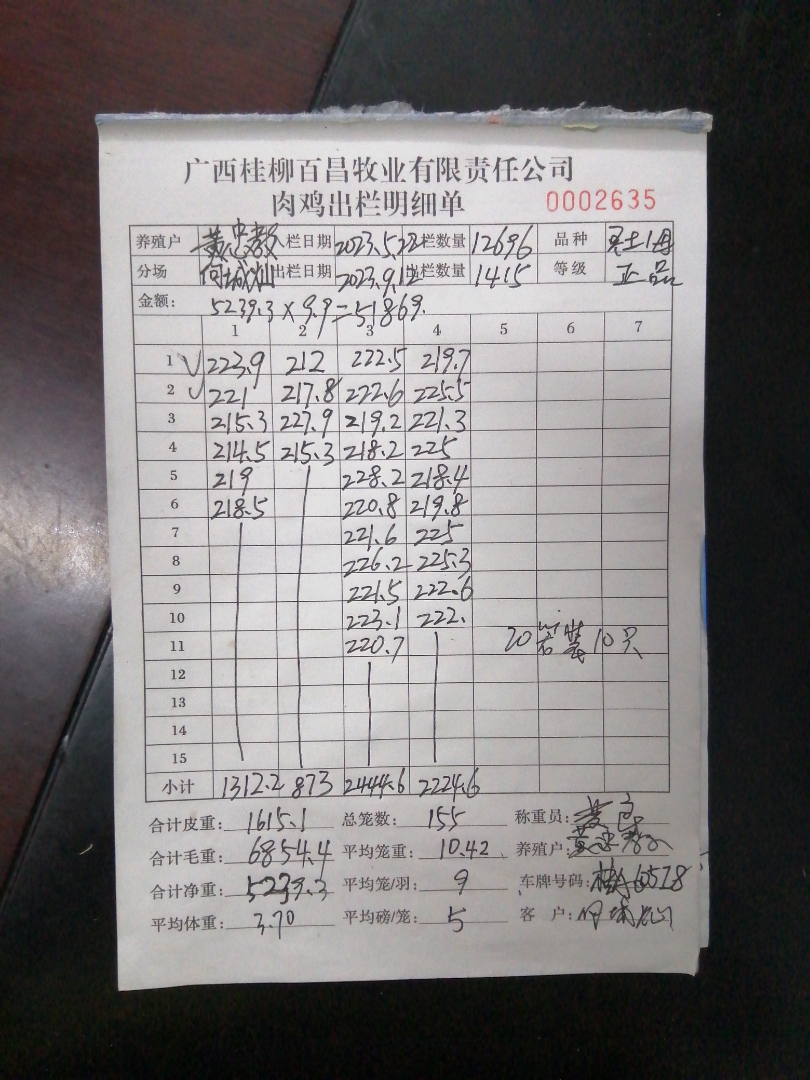 广西桂柳百昌牧业有限责任公司
肉鸡出栏明细单 0002635
养殖户 黄忠教 入栏日期 2023.5.22 栏数量 12696 品种 土1母
分场 何城灿 出栏日期 2023.9.12 出栏数量 1415 等级 正品
金额: 5239.3×9.9=51869.
1 2 3 4 5 6 7
1 223.9 212 222.5 219.7
2 221 217.8 222.6 225.5
3 215.3 227.9 219.2 221.3
4 214.5 215.3 218.2 225
5 219 228.2 218.4
6 218.5 220.8 219.8
7 221.6 225
8 226.2 225.3
9 221.5 222.6
10 223.1 222.
11 220.7 20 装10只
12
13
14
15
小计 1312.2 873 2444.6 2224.6
合计皮重: 1615.1 总笼数: 155 称重员:
合计毛重: 6854.4 平均笼重: 10.42 养殖户: 黄忠教
合计净重: 5239.3 平均笼/羽: 9 车牌号码:
平均体重: 3.70 平均磅/笼: 5 客户: 何城灿